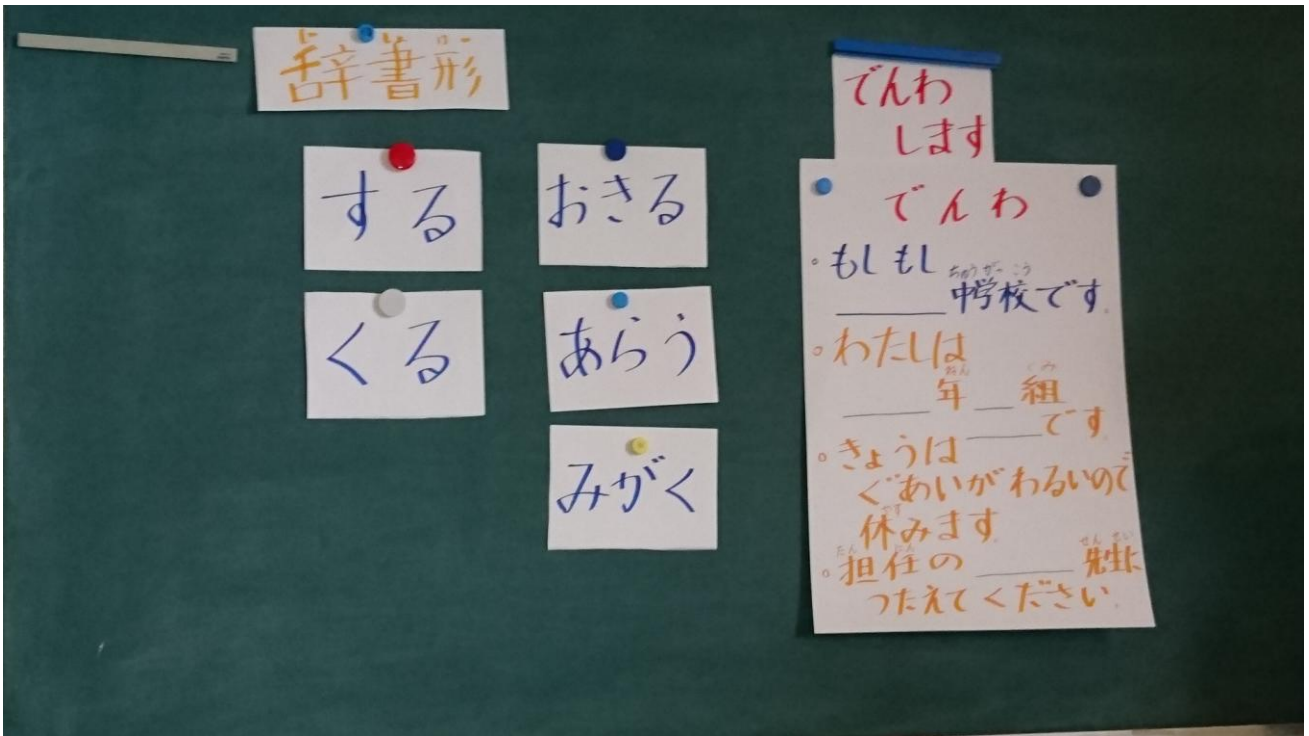 辞書形
する
くる
おきる
あらう
みがく
でんわ
します
でんわ
◦もしもし
中学校です。
◦わたしは
年 組
です
◦きょうは
ぐあいがわるいので
休みます
◦担任の 先生に
つたえてください。